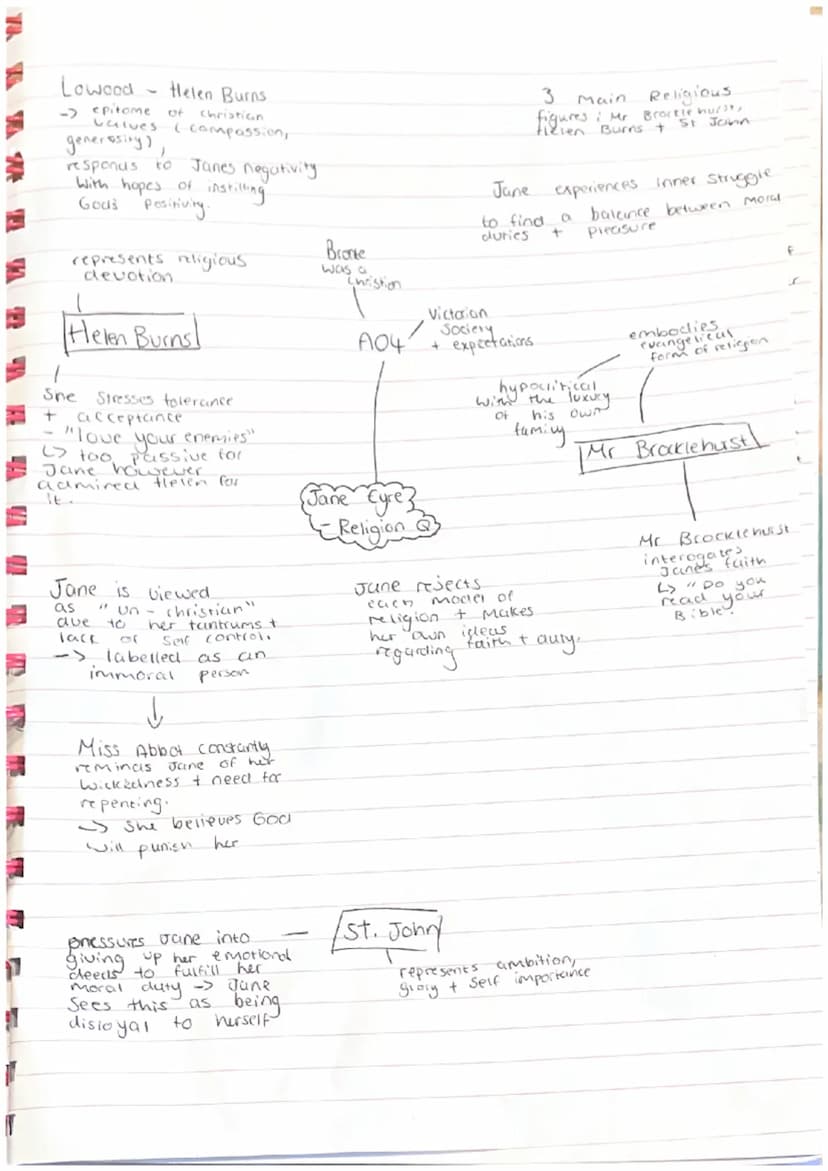 Lowood - Helen Burns
-> epitome of christian
values (compassion,
generosity),
responds to Janes negativity
with hopes of instilling
God's positivity.
3 Main Religious
figures: Mr Brocklehurst,
Helen Burns + St John
Jane experiences inner struggle
to find a balance between moral
duties + pleasure
represents religious
devotion
Helen Burns
She stresses tolerance
+ acceptance
- "love your enemies"
↳ too passive for
Jane however
admired Helen for
it.
Bronte
was a
Christian
AO4
Victorian
Society
+ expectations
embodies
evangelical
form of religion
hypocritical
with the luxury
of his own
family
Mr Brocklehurst
Jane Eyre
- Religion Q
Mr Brocklehurst
interogates
Janes faith
↳ "Do you
read your
Bible?"
Jane is viewed
as "un-christian"
due to her tantrums +
lack of self control.
-> labelled as an
immoral person
Jane rejects
each model of
religion + makes
her own ideas
regarding faith + duty.
Miss Abbot constantly
reminds Jane of her
wickedness + need for
repenting.
-> She believes God
will punish her
St. John
pressures Jane into
giving up her emotional
deeds to fulfill her
moral duty -> Jane
sees this as being
disloyal to herself
represents ambition,
glory + self importance